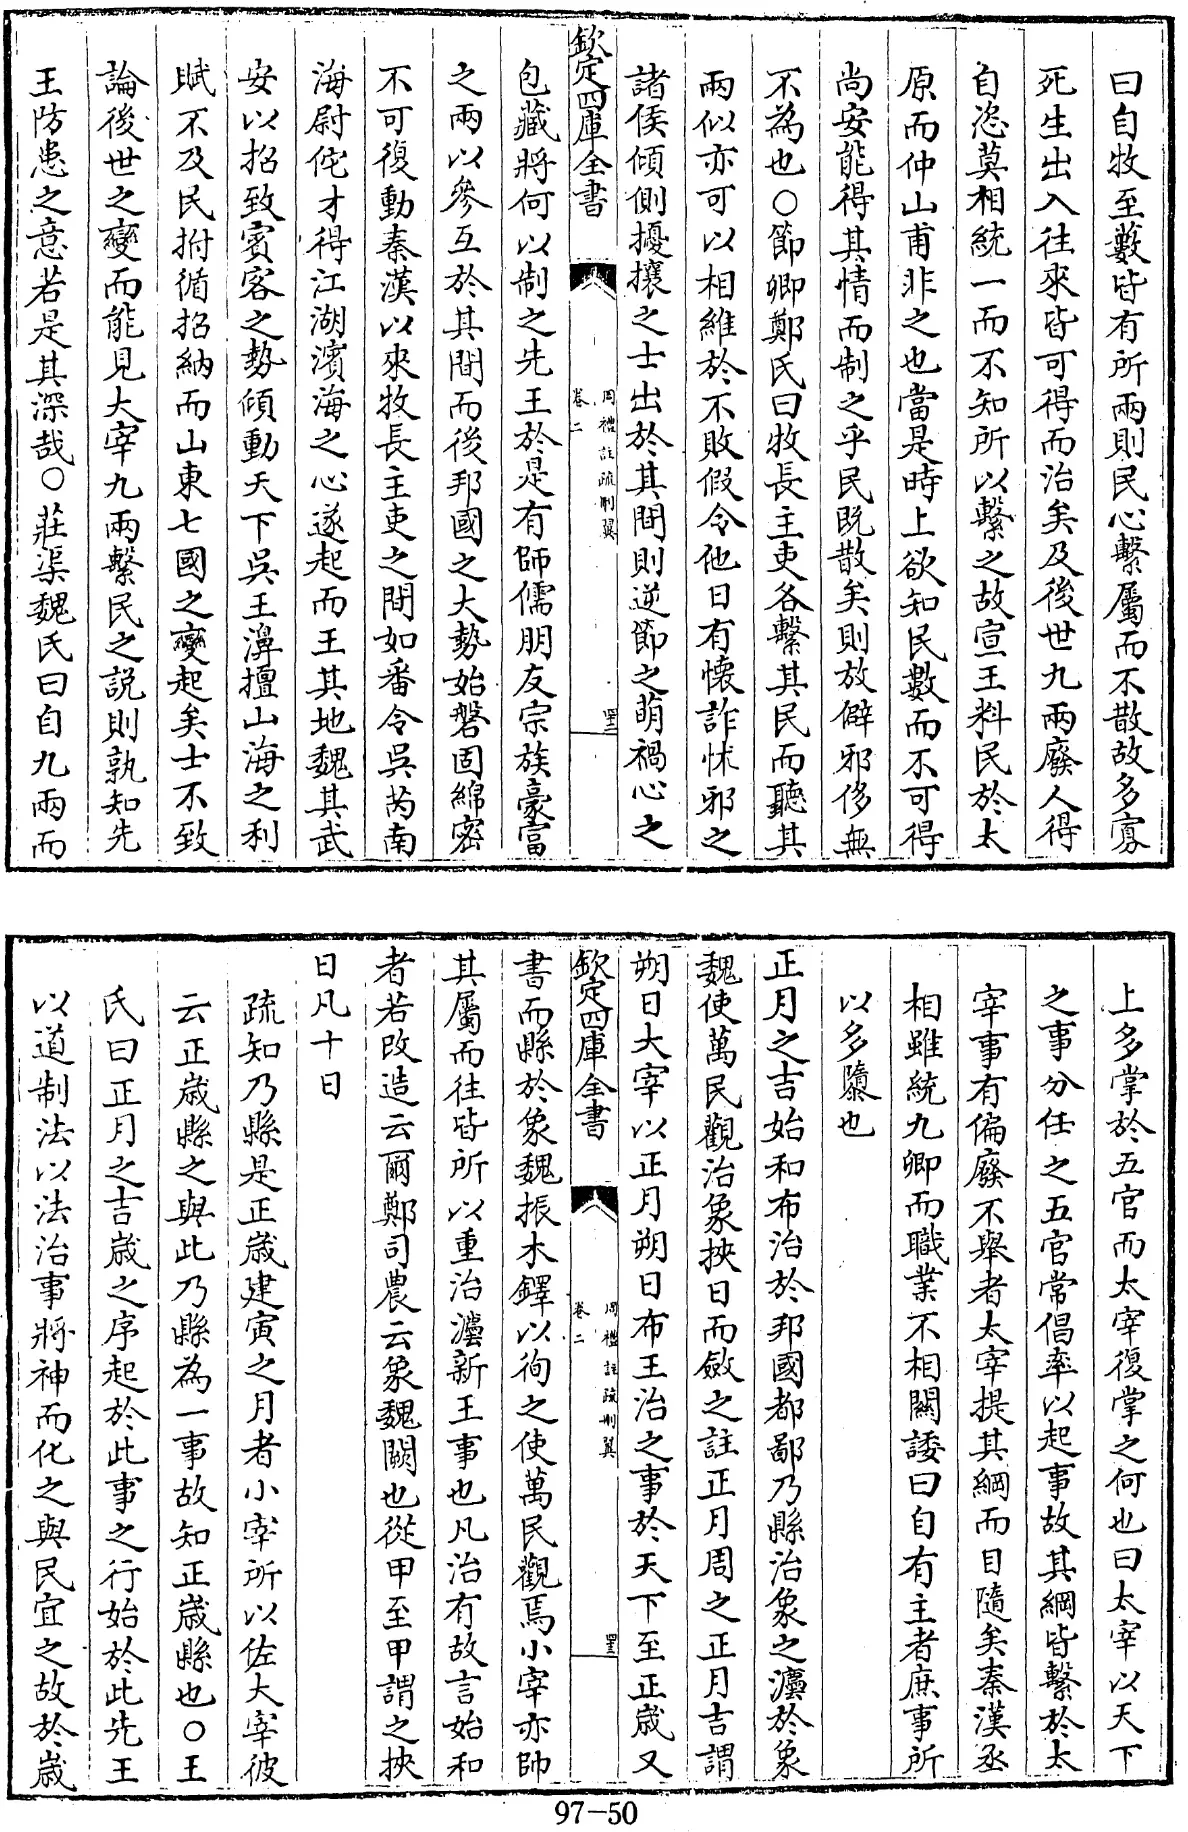 曰自牧至藪皆有所兩則民心繫屬而不散故多寡
死生出入徃來皆可得而治矣及後世九兩廢人得
自恣莫相統一而不知所以繫之故宣王料民於太
原而仲山甫非之也當是時上欲知民數而不可得
尚安能得其情而制之乎民既散矣則放僻邪侈無
不為也○節卿鄭氏曰牧長主吏各繫其民而聽其
兩似亦可以相維於不敗假令他日有懷詐怵邪之
諸侯傾側擾攘之士出於其間則逆節之萌禍心之
欽定四庫全書
周禮註疏刪翼
卷二
罜
包藏將何以制之先王於是有師儒朋友宗族豪富
之兩以參互於其間而後邦國之大勢始磐固綿密
不可復動秦漢以來牧長主吏之間如番令吳芮南
海尉佗才得江湖濱海之心遂起而王其地魏其武
安以招致賓客之勢傾動天下吳王濞擅山海之利
賦不及民拊循招納而山東七國之變起矣士不致
論後世之變而能見大宰九兩繫民之説則孰知先
王防患之意若是其深哉○莊渠魏氏曰自九兩而
上多掌於五官而太宰復掌之何也曰太宰以天下
之事分任之五官常倡率以起事故其綱皆繫於太
宰事有偏廢不舉者太宰提其綱而目隨矣秦漢丞
相雖統九卿而職業不相關諉曰自有主者庶事所
以多隳也
正月之吉始和布治於邦國都鄙乃縣治象之灋於象
魏使萬民觀治象挾日而斂之註正月周之正月吉謂
朔日大宰以正月朔日布王治之事於天下至正歲又
欽定四庫全書
周禮註疏刪翼
卷二
書而縣於象魏振木鐸以徇之使萬民觀焉小宰亦帥
其屬而往皆所以重治灋新王事也凡治有故言始和
者若改造云爾鄭司農云象魏闕也從甲至甲謂之挾
日凡十日
疏知乃縣是正歲建寅之月者小宰所以佐大宰彼
云正歲縣之與此乃縣為一事故知正歲縣也○王
氏曰正月之吉歲之序起於此事之行始於此先王
以道制法以法治事將神而化之與民宜之故於歲
97-50